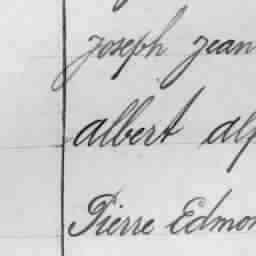 Joseph Jean
albert alp
Pierre Edmon